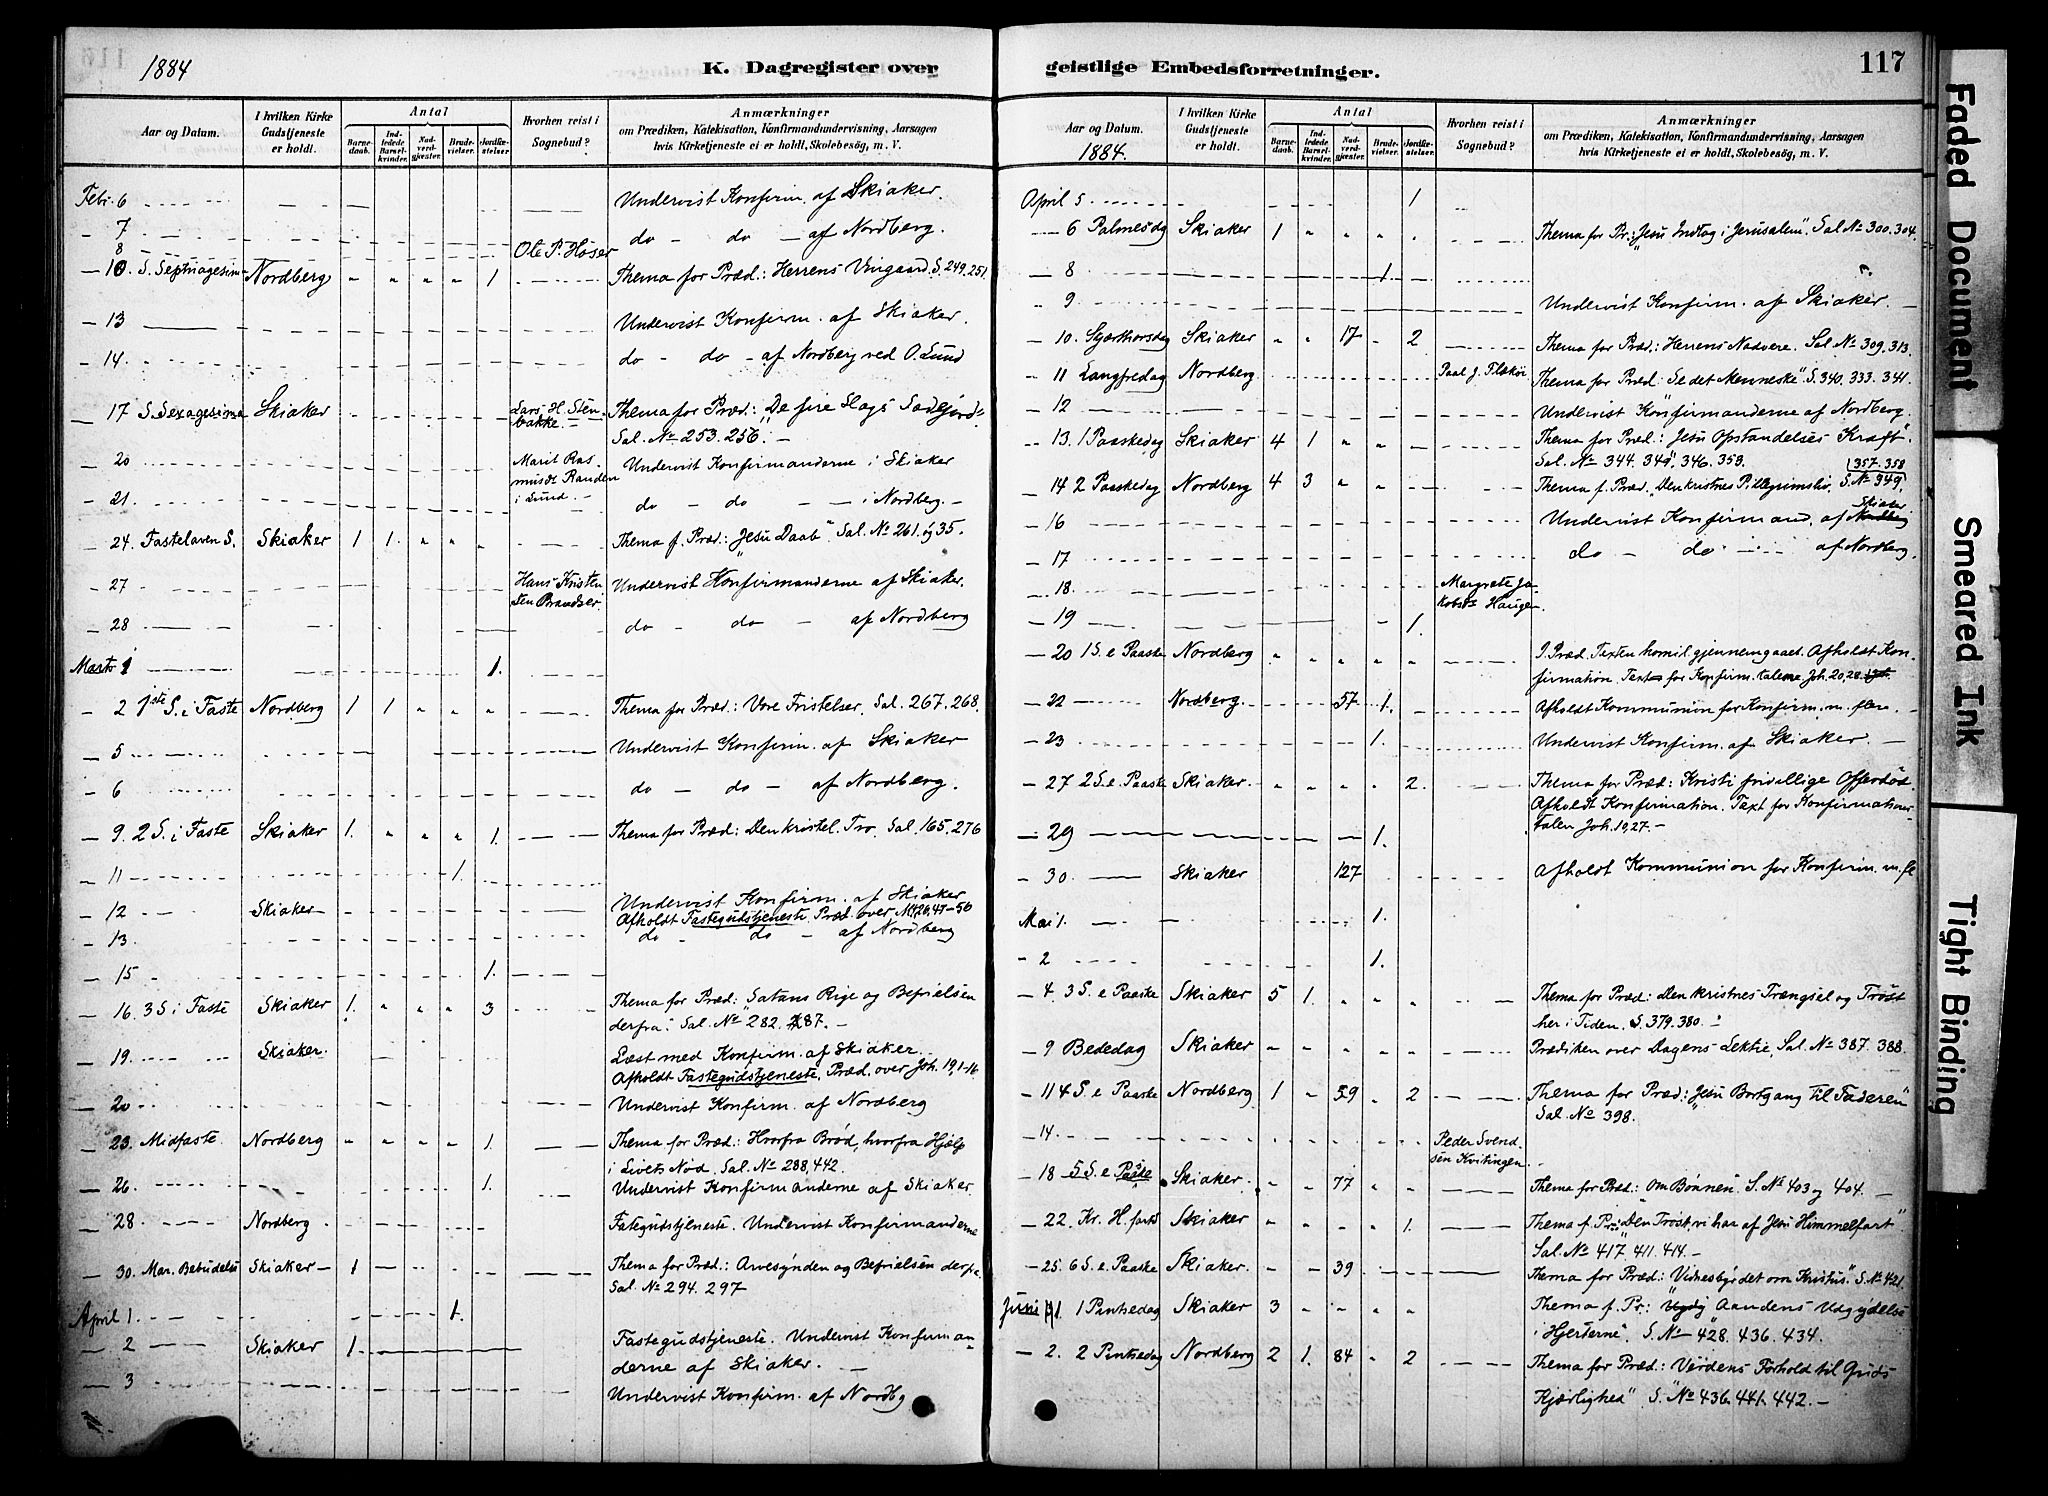 1884
K. Dagregister over
Aar og Datum.
I hvilken Kirke Gudstjeneste er holdt.
Antal
Barnedaab.
Indledede Barselkvinder.
Nadverdgjester.
Brudevielser.
Jordfæstelser.
Hvorhen reist i Sognebud?
Anmærkninger
om Prædiken, Katekisation, Konfirmandundervisning, Aarsagen
hvis Kirketjeneste ei er holdt, Skolebesøg, m. V.
Febr. 6 Undervist Konfirm. af Skiaker.
- 7 do - do - af Nordberg.
8 Ole P. Høser
- 10 S. Septuagesim- Nordberg " " " " 1 Thema for Præd.: Herrens Vingaard. S. 249. 251.
- 13 Undervist Konfirm. af Skiaker.
- 14. do - do - af Nordberg ved O. Lund
- 17 S. Sexagesima Skiaker Lars H. Sten- Thema for Præd.: "De fire Slags Sædejord"
bakke. Sal. No 253. 256. -
- 20 Marit Ras- Undervist Konfirmanderne i Skiaker
musdr Randen
- 21. i Lund. - do - do - i Nordberg. -
- 24. Fastelaven S. Skiaker 1 1. " " " Thema f. Præd.: "Jesu Daab" Sal. No 261. og 35.
- 27 Hans Kristen- Undervist Konfirmanderne af Skiaker.
sen Brandser
- 28 do - do - af Nordberg
Marts 1 1.
- 2 1ste S. i Faste Nordberg 1 1 " " " Thema for Præd.: Vore Fristelser. Sal. 267. 268.
- 5 Undervist Konfirm. af Skiaker
- 6 do - do - af Nordberg.
- 9. 2 S. i Faste Skiaker 1. " " " 1. Thema for Præd.: Den kristel. Tro. Sal. 165. 276
- 11 1.
- 12 Skiaker Undervist Konfirm. af Skiaker
Afholdt Fastegudstjeneste. Præd. over Mt. 26, 47-56
- 13 do - do - af Nordberg
- 15 1.
- 16. 3 S. i Faste Skiaker 1. " " " 3 Thema for Præd.: "Satans Rige og Befrielsen
derfra". Sal. No 282. 287. -
- 19. Skiaker. Læst med Konfirm. af Skiaker.
Afholdt Fastegudstjeneste. Præd. over Joh. 19, 1-16
- 20 Undervist Konfirm. af Nordberg
- 23. Midfaste. Nordberg " " " " 1. Thema for Præd.: Hvorfra Brød, hvorfra Hjælp
i Livets Nød. Sal. No 288, 442.
- 26. 1. Undervist Konfirmanderne af Skiaker
- 28 Nordberg Fastegudstjeneste. Undervist Konfirmanderne
- 30. Mar. Bebudelse Skiaker 1 Thema for Præd.: Arvesynden og Befrielsen derfra.
Sal. No 294. 297
April 1. 1.
- 2 Skiaker 1. Fastegudstjeneste. Undervist Konfirman-
derne af Skiaker. -
- 3 Undervist Konfirm. af Nordbg
geistlige Embedsforretninger.
117
Aar og Datum.
1884.
I hvilken Kirke Gudstjeneste er holdt.
Antal
Barnedaab.
Indledede Barselkvinder.
Nadverdgjester.
Brudevielser.
Jordfæstelser.
Hvorhen reist i Sognebud?
Anmærkninger
om Prædiken, Katekisation, Konfirmandundervisning, Aarsagen
hvis Kirketjeneste ei er holdt, Skolebesøg, m. V.
April 5 1
- 6 Palmesdg Skiaker 1 " " " " Thema for Pr.: "Jesu Indtog i Jerusalem". Sal No 300. 304.
- 8 1.
- 9 Undervist Konfirm. af Skiaker. -
- 10. Skjærthorsdag Skiaker " " 17 " 2 Thema for Præd.: Herrens Nadvere. Sal No 309. 313.
- 11 Langfredag Nordberg Paal J. Flækøi Thema for Præd: Se det Menneske". S. 340. 333. 341.
- 12 Undervist Konfirmanderne af Nordberg.
- 13. 1 Paaskedag Skiaker 4 1 " " Thema for Præd.: Jesu Opstandelses Kraft".
Sal. No 344. 349. 346. 353.
357. 358
- 14 2 Paaskedag Nordberg 4 3 " " Thema f. Præd. "Den kristnes Pillegrimsliv. S. No 349.
Skiaker
- 16 Undervist Konfirmand. af Nordberg
- 17 do - do - af Nordberg.
- 18. Margrete Ja-
kobsdr Haugen.
- 19 1.
- 20 1 S. e Paaske Nordberg " " " " " I Præd. Texten homil. gjennemgaaet. Afholdt Kon-
firmation. Text for Konfirm. talene Joh. 20, 28.
- 22 Nordberg. 57 1. Afholdt Kommunion for Konfirm. m. flere. -
- 23 1. Undervist Konfirm. af Skiaker. -
- 27 2 S. e. Paaske Skiaker. " " " " 2. Thema for Præd: Kristi frivillige Offerdød.
Afholdt Konfirmation. Text for Konfirmations-
- 29 1. talen Joh. 10, 27. -
- 30. Skiaker 127 Afholdt Kommunion for Konfirm. m. fl
Mai 1. 1.
- 2 1.
- 4. 3 S. e Paaske Skiaker 5 1. " " " Thema for Præd: Den kristnes Trængsel og Trøst
her i Tiden. S. 379. 380. -
- 9 Bededag Skiaker " " " " " Prædiken over Dagens Lektie, Sal. No 387. 388.
- 11 4 S. e Paaske Nordberg 1 " 59 " 2 Thema for Præd: "Jesu Bortgang til Faderen"
Sal. No 398.
- 14. Peder Svend-
sen Kvitingen.
- 18 5 S. e Paaske Skiaker. " " 77 " " Thema for Præd: "Om Bønnen". S. No 403 og 404. -
- 22. Kr. H. fartd Skiaker " " " " 1. Thema f. Pr: "Den Trøst, vi har af Jesu Himmelfart"
Sal. No 417 411. 414. -
- 25. 6 S. e. Paaske Skiaker. " " 39 Thema for Præd.: "Vidnesbyrdet om Kristus". S. No 421.
Juni 1 1 Pintsedag Skiaker 3 " " " Thema f. Pr: Aandens Udgydelse
i Hjerterne". S. No 428. 436. 434.
- 2. 2 Pintsedag Nordberg 2 1. 84 " 2 Thema for Præd.: "Verdens Forhold til Guds
Kjærlighed". S. No 436. 441. 442. -
Faded Document
Smeared Ink
Tight Binding